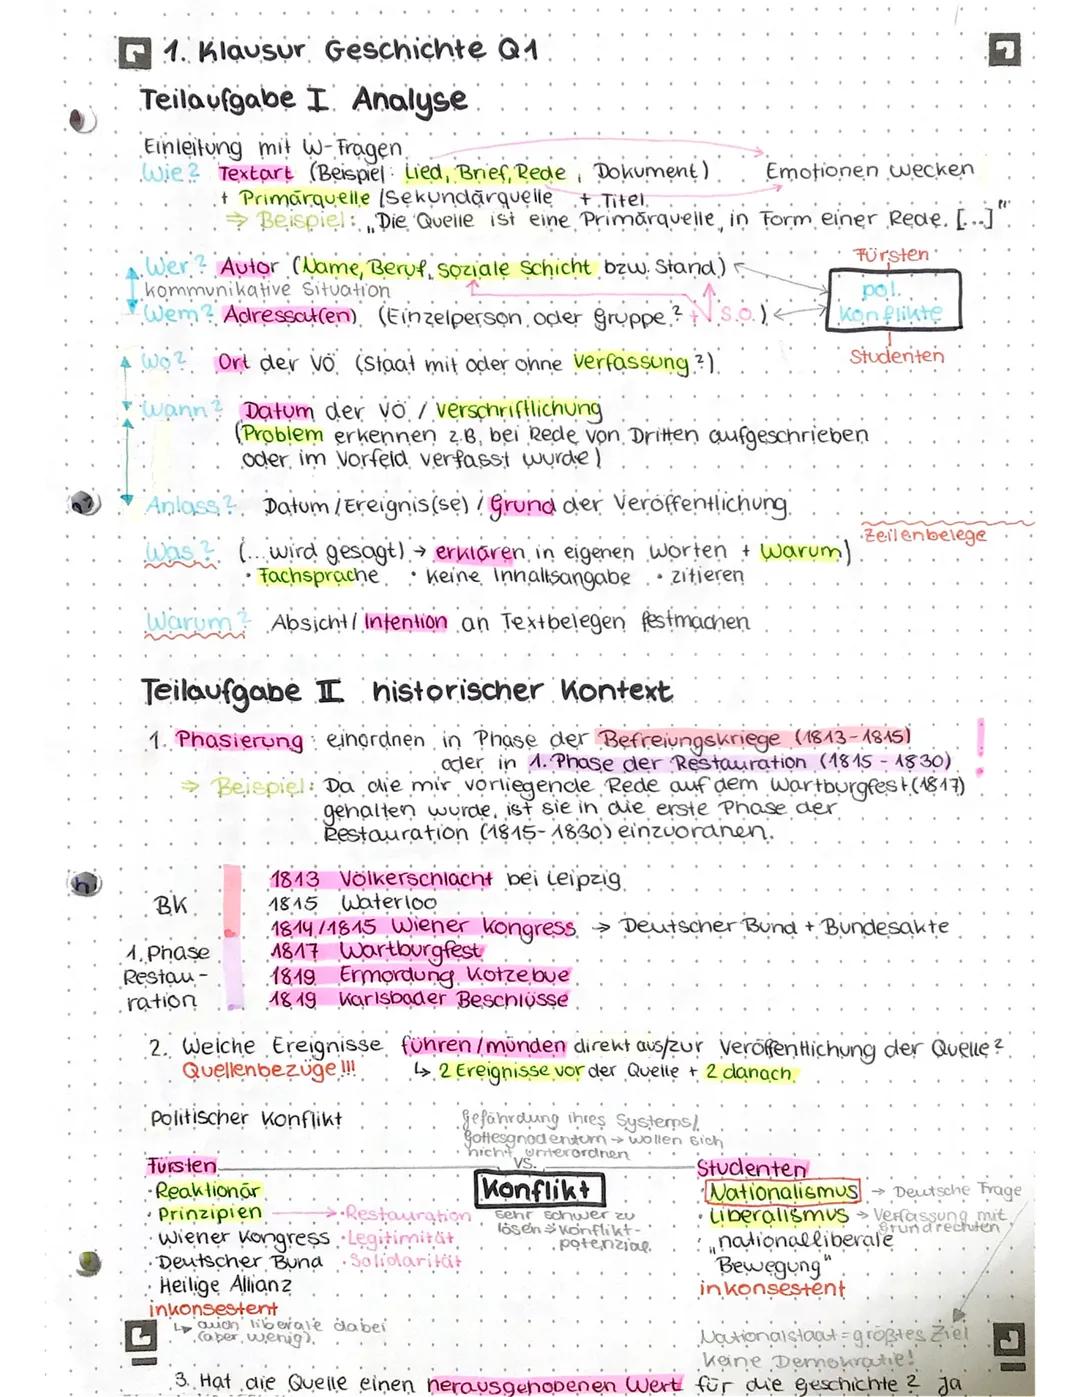 1. Klausur Geschichte Q1
Teilaufgabe I Analyse
Einleitung mit W-Fragen
Wie? Textart (Beispiel: Lied, Brief, Rede, Dokument) Emotionen wecken
+ Primärquelle / Sekundärquelle + Titel
⇒ Beispiel: „Die Quelle ist eine Primärquelle, in Form einer Rede. [...]"
Fürsten
Wer? Autor (Name, Beruf, soziale Schicht bzw. Stand)
pol. Konflikte
kommunikative Situation
Wem? Adressat(en) (Einzelperson oder Gruppe? + s.o.)
Studenten
Wo? Ort der VÖ (Staat mit oder ohne Verfassung?)
Wann? Datum der VÖ / Verschriftlichung
(Problem erkennen z.B. bei Rede von Dritten aufgeschrieben
oder im Vorfeld verfasst wurde)
Anlass? Datum / Ereignis(se) / Grund der Veröffentlichung
Zeilenbelege
Was? (...wird gesagt) → erklären in eigenen Worten + Warum)
· Fachsprache · keine Inhaltsangabe · zitieren
Warum? Absicht / Intention an Textbelegen festmachen
Teilaufgabe II historischer Kontext
1. Phasierung: einordnen in Phase der Befreiungskriege (1813-1815)
oder in 1. Phase der Restauration (1815 - 1830) !
⇒ Beispiel: Da die mir vorliegende Rede auf dem Wartburgfest (1817)
gehalten wurde, ist sie in die erste Phase der
Restauration (1815-1830) einzuordnen.
1813 Völkerschlacht bei Leipzig
BK 1815 Waterloo
1814/1815 Wiener Kongress → Deutscher Bund + Bundesakte
1. Phase 1817 Wartburgfest
Restau- 1819 Ermordung Kotzebue
ration 1819 Karlsbader Beschlüsse
2. Welche Ereignisse führen/münden direkt aus/zur Veröffentlichung der Quelle?
Quellenbezüge!!! ↳ 2 Ereignisse vor der Quelle + 2 danach
Politischer Konflikt
Gefährdung ihres Systems/
Gottesgnadentum → wollen sich
nicht unterordnen
Fürsten vs. Studenten
· Reaktionär Konflikt · Nationalismus → Deutsche Frage
· Prinzipien → · Restauration sehr schwer zu · Liberalismus → Verfassung mit
lösen ⇒ Konflikt- Grundrechten
· Wiener Kongress · Legitimität potenzial · „nationalliberale
· Deutscher Bund · Solidarität Bewegung"
· Heilige Allianz inkonsestent
inkonsestent
↳ auch liberale dabei
(aber wenig)
Nationalstaat = größtes Ziel
keine Demokratie!
3. Hat die Quelle einen herausgehobenen Wert für die Geschichte? Ja